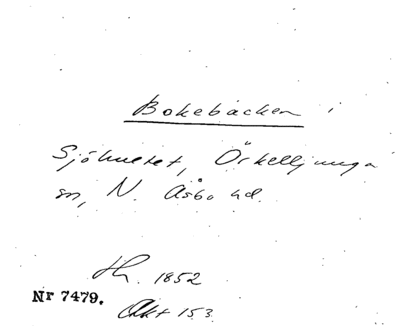 Bokebäcken i
Sjöhuset, Örkelljunga
sn, N. Åsbo hd.
Hr. 1852
Nr 7479.
Akt 153